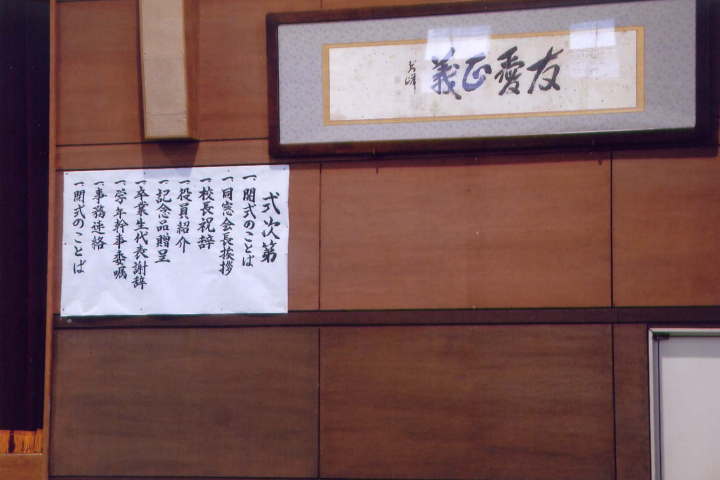 友愛正義
式次第
一、開式のことば
一、同窓会長挨拶
一、校長祝辞
一、役員紹介
一、記念品贈呈
一、卒業生代表謝辞
一、学年幹事委嘱
一、事務連絡
一、閉式のことば